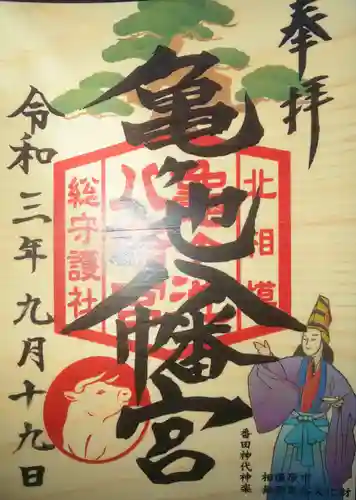 奉拝
亀ヶ池八幡宮
北相模
亀ヶ池
八幡宮
総守護社
令和三年九月十九日
番田神代神楽
相模原市